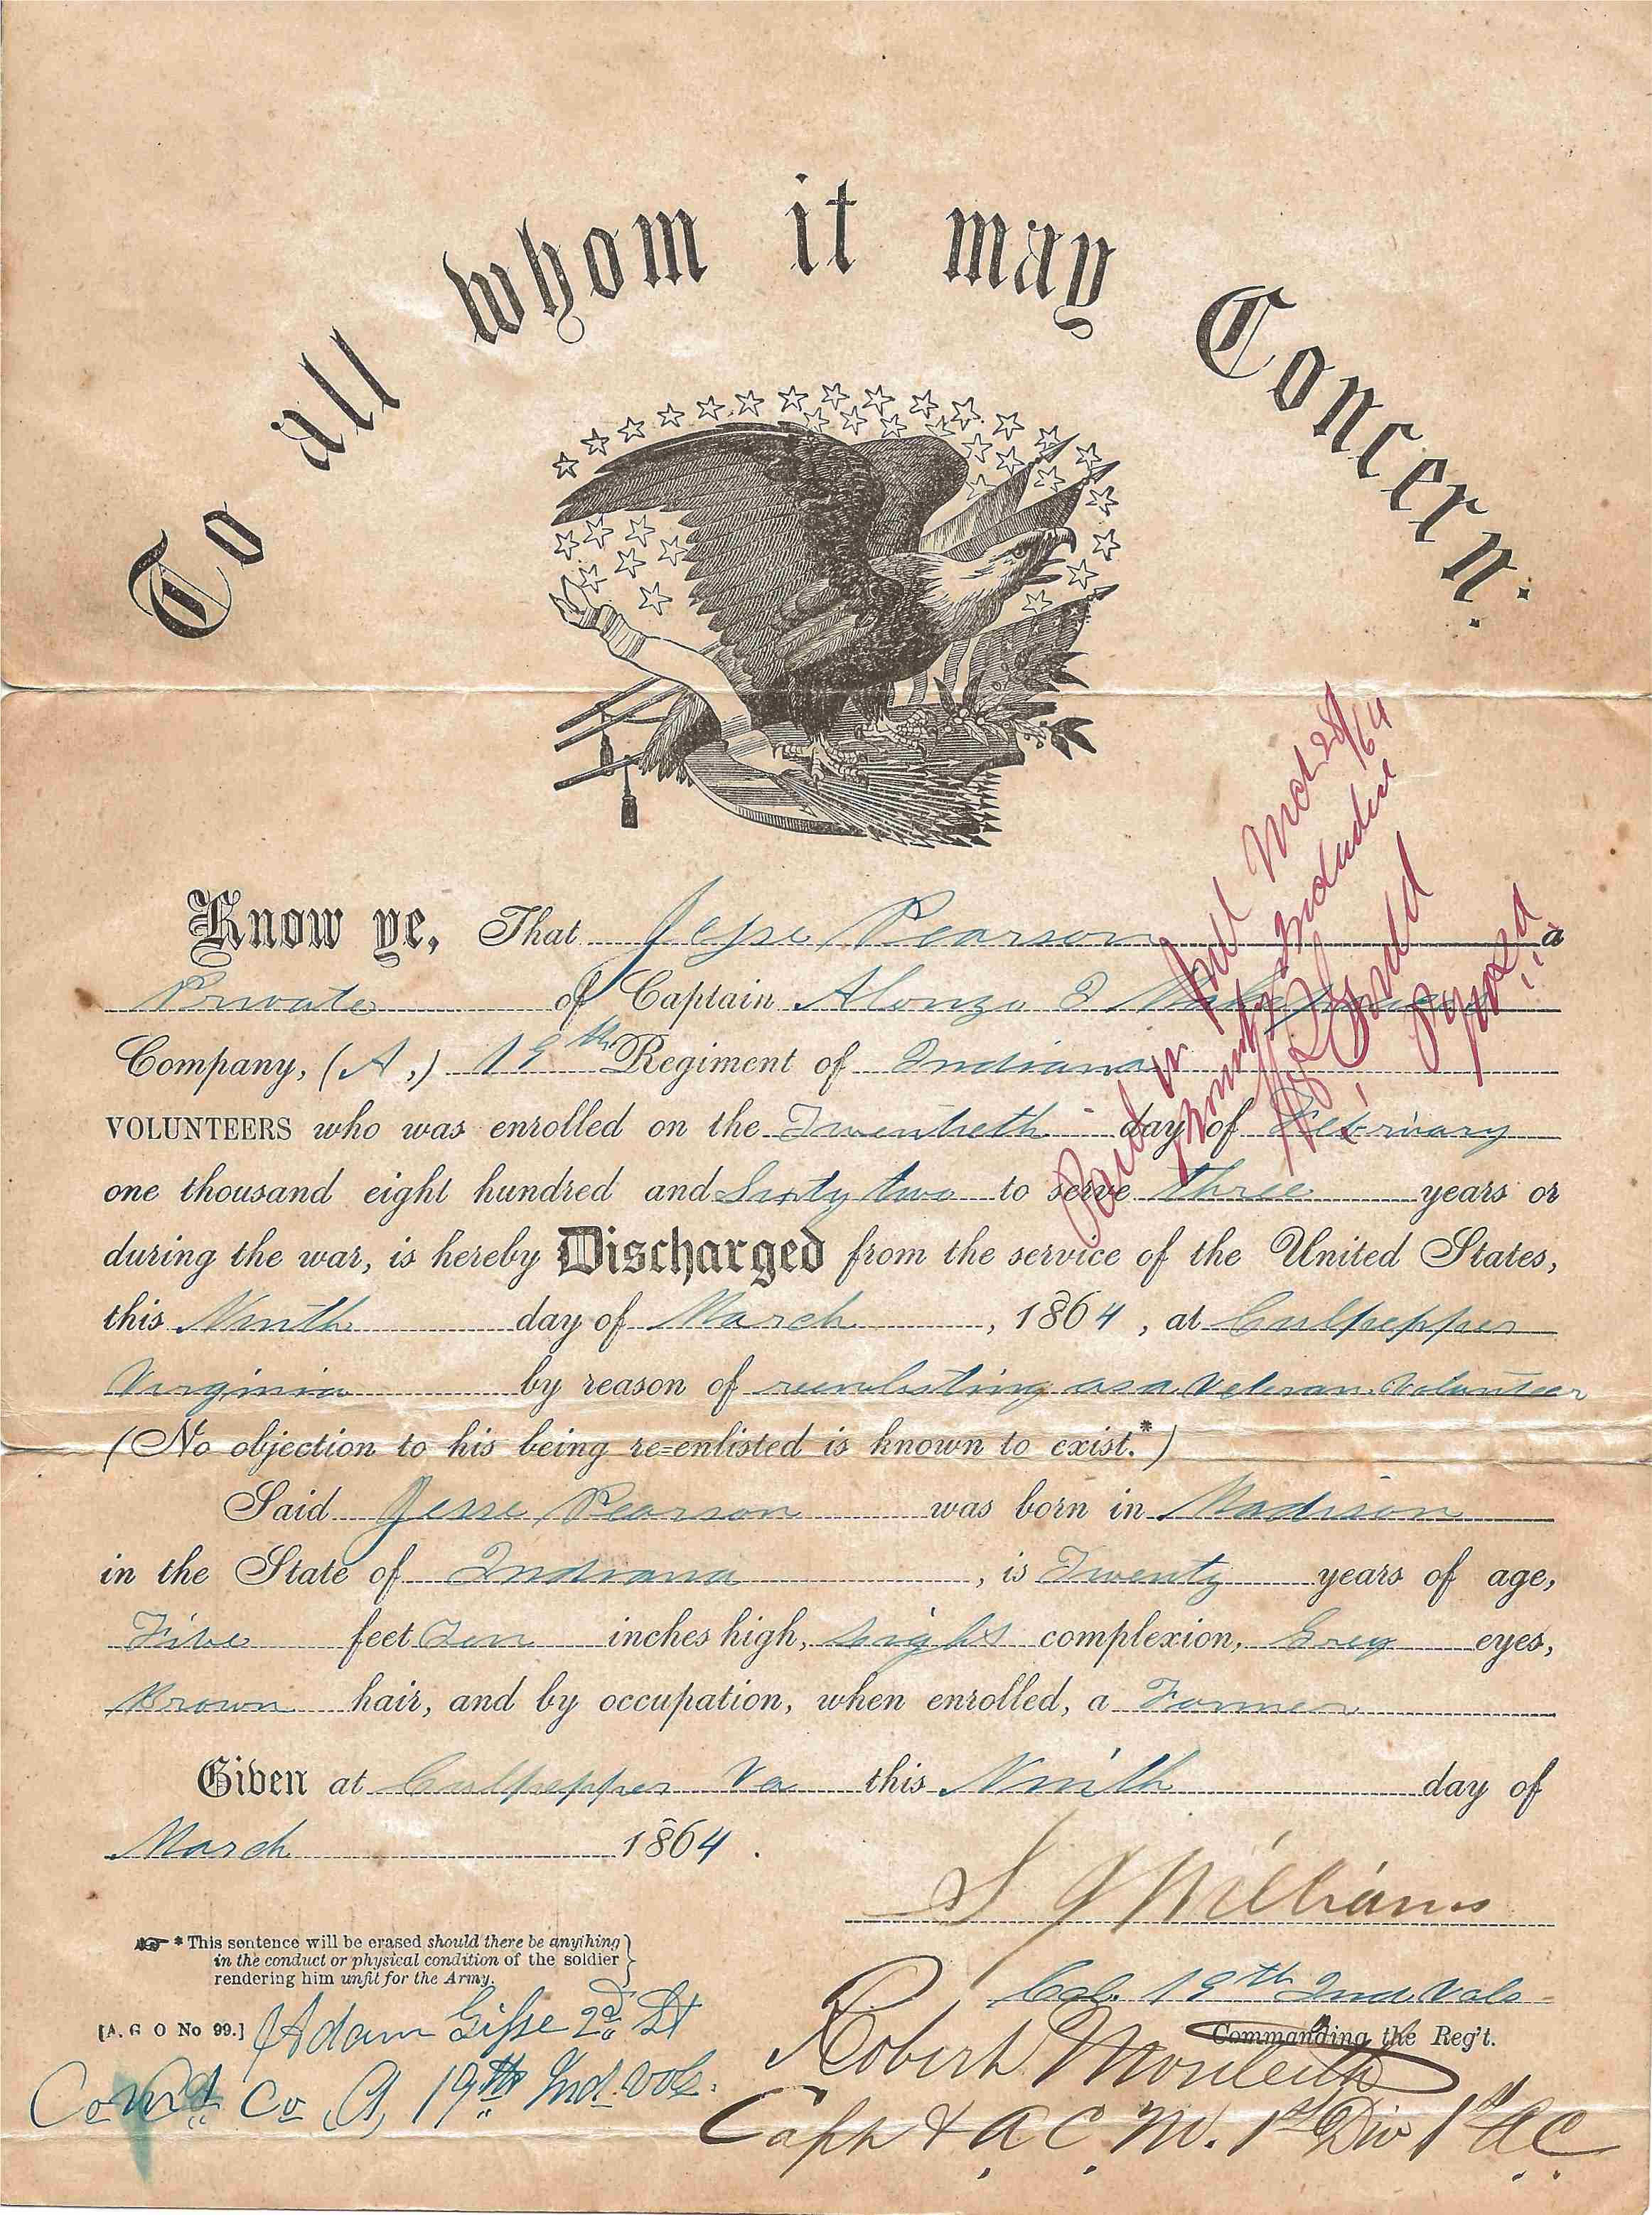 To all whom it may Concern:
Know ye, That Jesse Pearson a
Private of Captain Alonzo J Makepeace
Company, (A,) 19th Regiment of Indiana
VOLUNTEERS who was enrolled on the Twentieth day of February
one thousand eight hundred and Sixty two to serve three years or
during the war, is hereby Discharged from the service of the United States,
this Ninth day of March, 1864, at Culpepper
Virginia by reason of reenlisting as a Veteran Volunteer
(No objection to his being re=enlisted is known to exist.*)
Said Jesse Pearson was born in Madison
in the State of Indiana, is Twenty years of age,
Five feet Ten inches high, Light complexion, Grey eyes,
Brown hair, and by occupation, when enrolled, a Farmer
Given at Culpepper Va this Ninth day of
March 1864.
Paid in full Mch 28/64
Bounty Included
Paymaster
S J Williams
Col. 19th Ind. Vols
Commanding the Reg't.
* This sentence will be erased should there be anything
in the conduct or physical condition of the soldier
rendering him unfit for the Army.
[A. G O No 99.]
Adam Gisse 2d Lt
Com'd Co A, 19th Ind. Vols.
Robert Monteith
Capt & A. C. M. 1st Div 1st A.C.